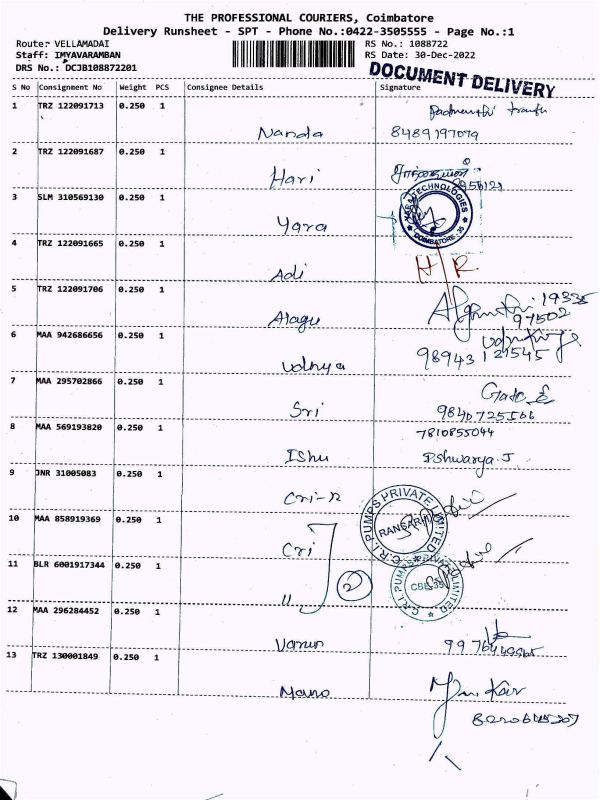 THE PROFESSIONAL COURIERS, Coimbatore
Delivery Runsheet - SPT - Phone No.:0422-3505555 - Page No.:1
Route: VELLAMADAI
RS No.: 1088722
Staff: IMYAVARAMBAN
RS Date: 30-Dec-2022
DRS No.: DCJB108872201
DOCUMENT DELIVERY
S No Consignment No Weight PCS Consignee Details Signature
1 TRZ 122091713 0.250 1
Nanda 8489197079
2 TRZ 122091687 0.250 1
Hari
3 SLM 310569130 0.250 1
TECHNOLOGIES
COIMBATORE - 35
Yara
4 TRZ 122091665 0.250 1
Adi H/R
5 TRZ 122091706 0.250 1 19335
Alagu 97502
6 MAA 942686656 0.250 1
Udhya 98943 121545
7 MAA 295702866 0.250 1 Gate
Sri
8 MAA 569193820 0.250 1 7810855044
Ishu Ishwarya.J
9 JNR 31005083 0.250 1
Cri-R
C.R.I. PUMPS PRIVATE LIMITED
10 MAA 858919369 0.250 1
Cri
11 BLR 6001917344 0.250 1
C.R.I. PUMPS PRIVATE LIMITED
" 2
12 MAA 296284452 0.250 1
Varun
13 TRZ 130001849 0.250 1
Mano